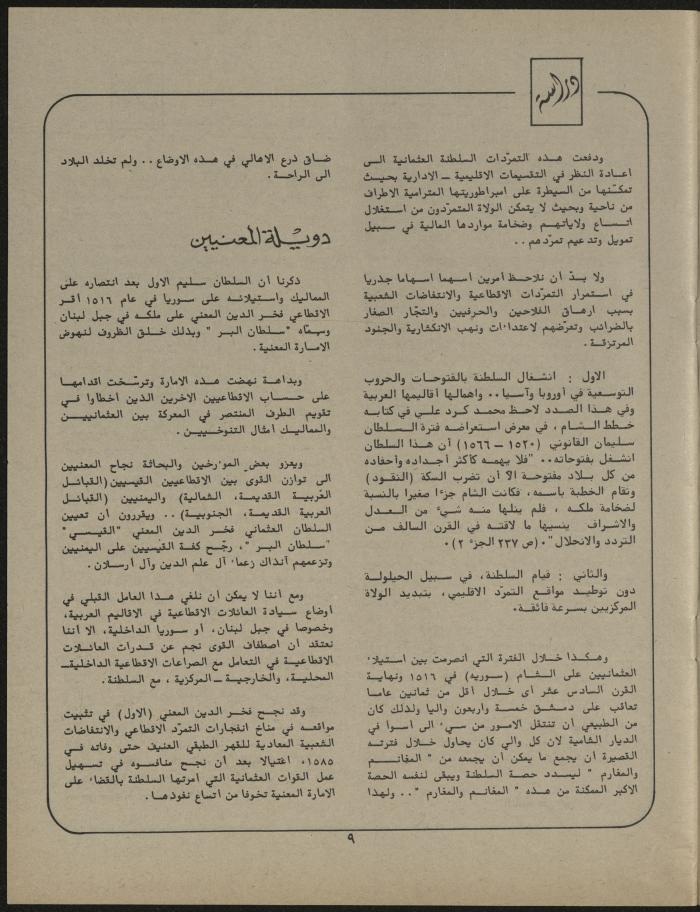 دراسة
ودفعت هذه التمرّدات السلطنة العثمانية الى
اعادة النظر في التقسيمات الاقليمية ــ الادارية بحيث
تمكّنها من السيطرة على امبراطوريتها المترامية الاطراف
من ناحية وبحيث لا يتمكن الولاة المتمرّدون من استغلال
اتساع ولاياتهم وضخامة مواردها المالية في سبيل
تمويل وتدعيم تمرّدهم ..
ولا بدّ أن نلاحظ أمرين أسهما اسهاما جذريا
في استمرار التمرّدات الاقطاعية والانتفاضات الشعبية
بسبب ارهاق الفلاحين والحرفيين والتجّار الصغار
بالضرائب وتعرّضهم لاعتداءات ونهب الانكشارية والجنود
المرتزقة .
الاول : انشغال السلطنة بالفتوحات والحروب
التوسعية في أوروبا وآسيا .. واهمالها أقاليمها العربية
وفي هذا الصدد لاحظ محمد كرد علي في كتابه
خطط الشام ، في معرض استعراضه فترة السلطان
سليمان القانوني (١٥٢٠ – ١٥٦٦) أن هذا السلطان
انشغل بفتوحاته .. "فلا يهمه كأكثر أجداده وأحفاده
من كل بلاد مفتوحة الآّ أن تضرب السكة (النقود)
وتقام الخطبة باسمه، فكانت الشام جزءا صغيرا بالنسبة
لضخامة ملكه ، فلم ينلها منه شيء من العدل
والاشراف ينسيها ما لاقته في القرن السالف من
التردد والانحلال" . (ص ٢٣٧ الجزء ٢) .
والثاني : قيام السلطنة، في سبيل الحيلولة
دون توطيد مواقع التمرّد الاقليمي، بتبديد الولاة
المركزيين بسرعة فائقة .
وهكذا خلال الفترة التي انصرمت بين استيلاء
العثمانيين على الشام (سوريه) في ١٥١٦ ونهاية
القرن السادس عشر أى خلال أقل من ثمانين عاما
تعاقب على دمشق خمسة واربعون واليا ولذلك كان
من الطبيعي أن تنتقل الامور من سيء الى أسوأ في
الديار الشامية لان كل والي كان يحاول خلال فترته
القصيرة أن يجمع ما يمكن أن يجمعه من " المغانم
والمغارم " ليسدد حصة السلطنة ويبقى لنفسه الحصة
الاكبر الممكنة من هذه " المغانم والمغارم " .. ولهذا
ضاق ذرع الاهالي في هذه الاوضاع .. ولم تخلد البلاد
الى الراحة .
دويلة المعنيين
ذكرنا أن السلطان سليم الاول بعد انتصاره على
المماليك واستيلائه على سوريا في عام ١٥١٦ أقر
الاقطاعي فخر الدين المعني على ملكه في جبل لبنان
وسمّاه "سلطان البر " وبذلك خلق الظروف لنهوض
الامارة المعنية .
وبداهة نهضت هذه الامارة وترسّخت اقدامها
على حساب الاقطاعيين الاخرين الذين أخطأوا في
تقويم الطرف المنتصر في المعركة بين العثمانيين
والمماليك أمثال التنوخيين .
ويعزو بعض المؤرخين والبحاثة نجاح المعنيين
الى توازن القوى بين الاقطاعيين القيسيين (القبائل
العربية القديمة، الشمالية) واليمنيين (القبائل
العربية القديمة، الجنوبية) .. ويقررون أن تعيين
السلطان العثماني فخر الدين المعني "القيسي"
"سلطان البر "، رجّح كفة القيسيين على اليمنيين
وتزعمهم آنذاك زعماء آل علم الدين وآل أرسلان .
ومع أننا لا يمكن أن نلغي هذا العامل القبلي في
أوضاع سيادة العائلات الاقطاعية في الاقاليم العربية،
وخصوصا في جبل لبنان، أو سوريا الداخلية، الا أننا
نعتقد أن اصطفاف القوى نجم عن قدرات العائلات
الاقطاعية في التعامل مع الصراعات الاقطاعية الداخلية–
المحلية، والخارجية – المركزية ، مع السلطنة .
وقد نجح فخر الدين المعني (الاول) في تثبيت
مواقعه في مناخ انفجارات التمرّد الاقطاعي والانتفاضات
الشعبية المعادية للقهر الطبقي العنيف حتى وفاته في
١٥٨٥، اغتيالا بعد أن نجح منافسوه في تسهيل
عمل القوات العثمانية التي أمرتها السلطنة بالقضاء على
الامارة المعنية تخوفا من اتساع نفوذها .
٩